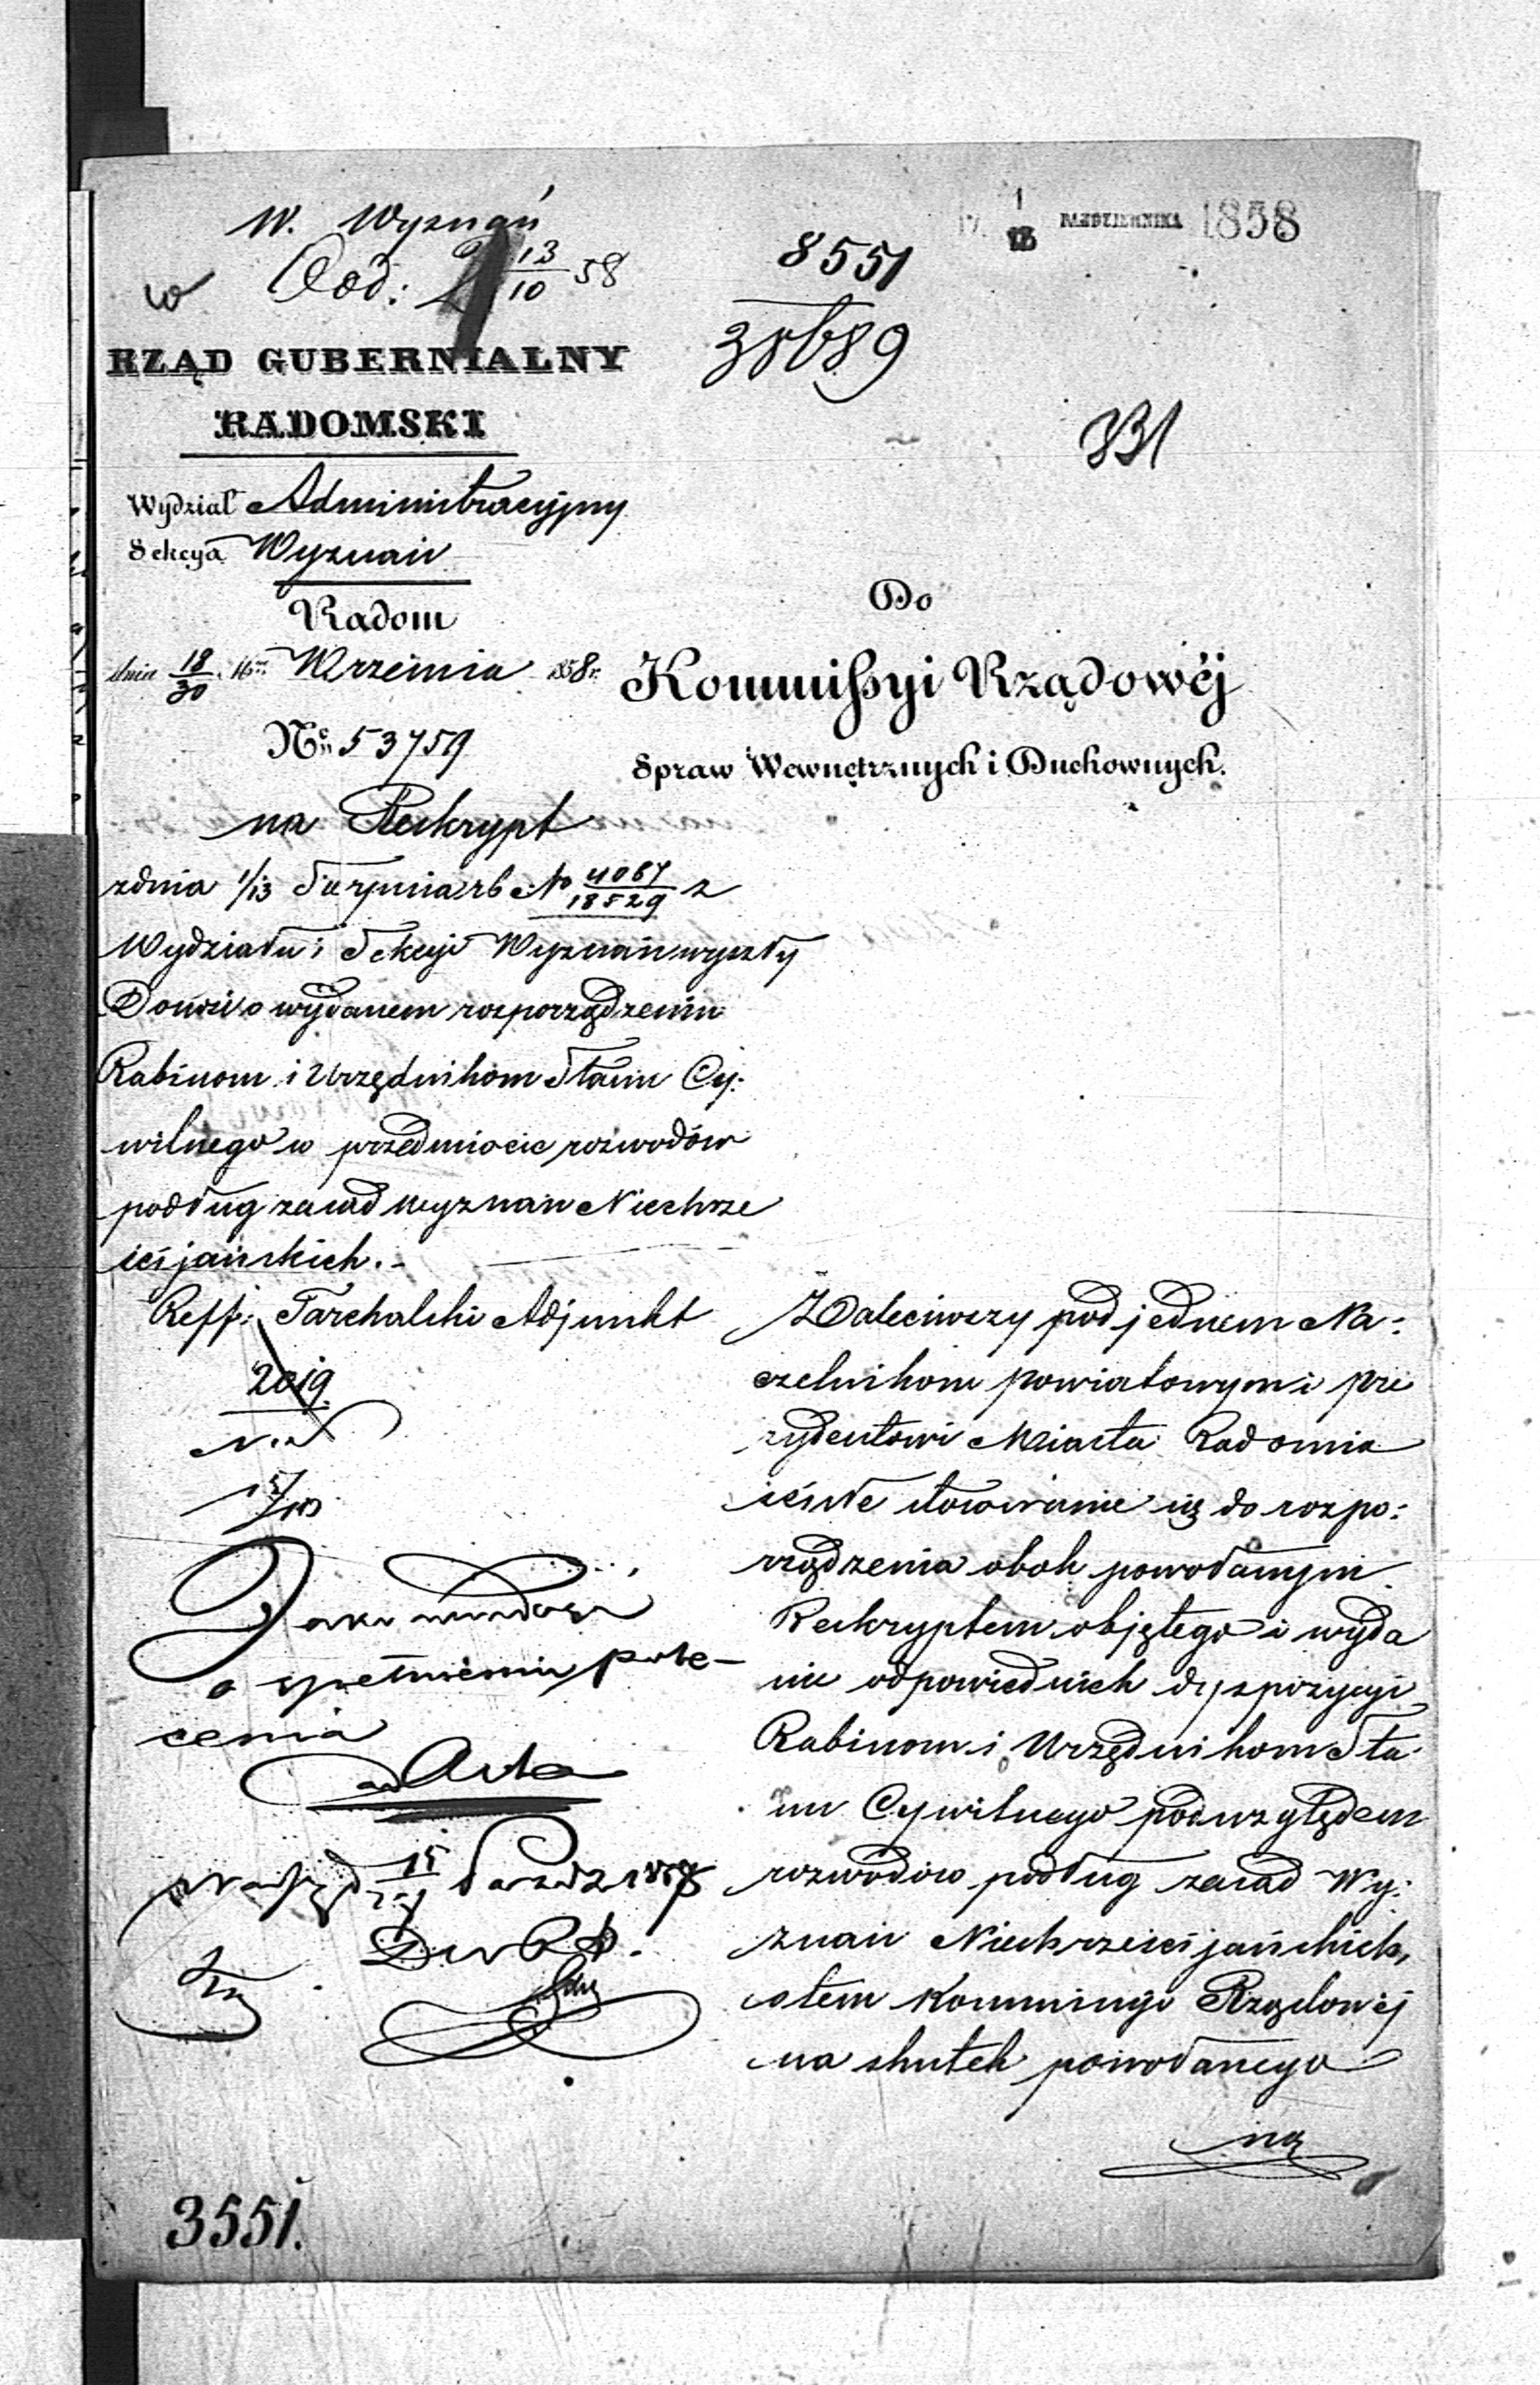 W. Wyznań
w Odd: 13/10 58
8551
38689
1/13 PAŹDZIERNIKA 1858
331
RZĄD GUBERNIALNY
RADOMSKI
Wydział Administracyjny
Sekcya Wyznań
Radom
dnia 18/30 Września 1858 r.
No 53759
Do
Kommissyi Rządowéj
Spraw Wewnętrznych i Duchownych.
na Reskrypt
z dnia 1/13 Sierpnia rb No 4067/18529 z
Wydziału i Sekcyi Wyznań wyszły
Donosi o wydanem rozporządzeniu
Rabinom i Urzędnikom Stanu Cy:
wilnego w przedmiocie rozwodów
podług zasad wyznań Niechrze
ścijańskich.-
Reff: Tarchalski Adjunkt
2019
15/10
Jako
o spełnieniu pole-
cenia
ad Acta
15
D W R S.
Zaleciwszy pod jednem Na:
czelnikom powiatowym i pre
zydentowi Miasta Radomia
ścisłe stosowanie się do rozpo:
rządzenia obok powołanym
Reskryptem objętego i wyda
nie odpowiednich dyspozycyi
Rabinom i Urzędnikom Sta
nu Cywilnego pod względem
rozwodów podług zasad Wy:
znań Niechrześcijańskich,
o tem Kommissyi Rządowéj
na skutek powołanego
na
3551.